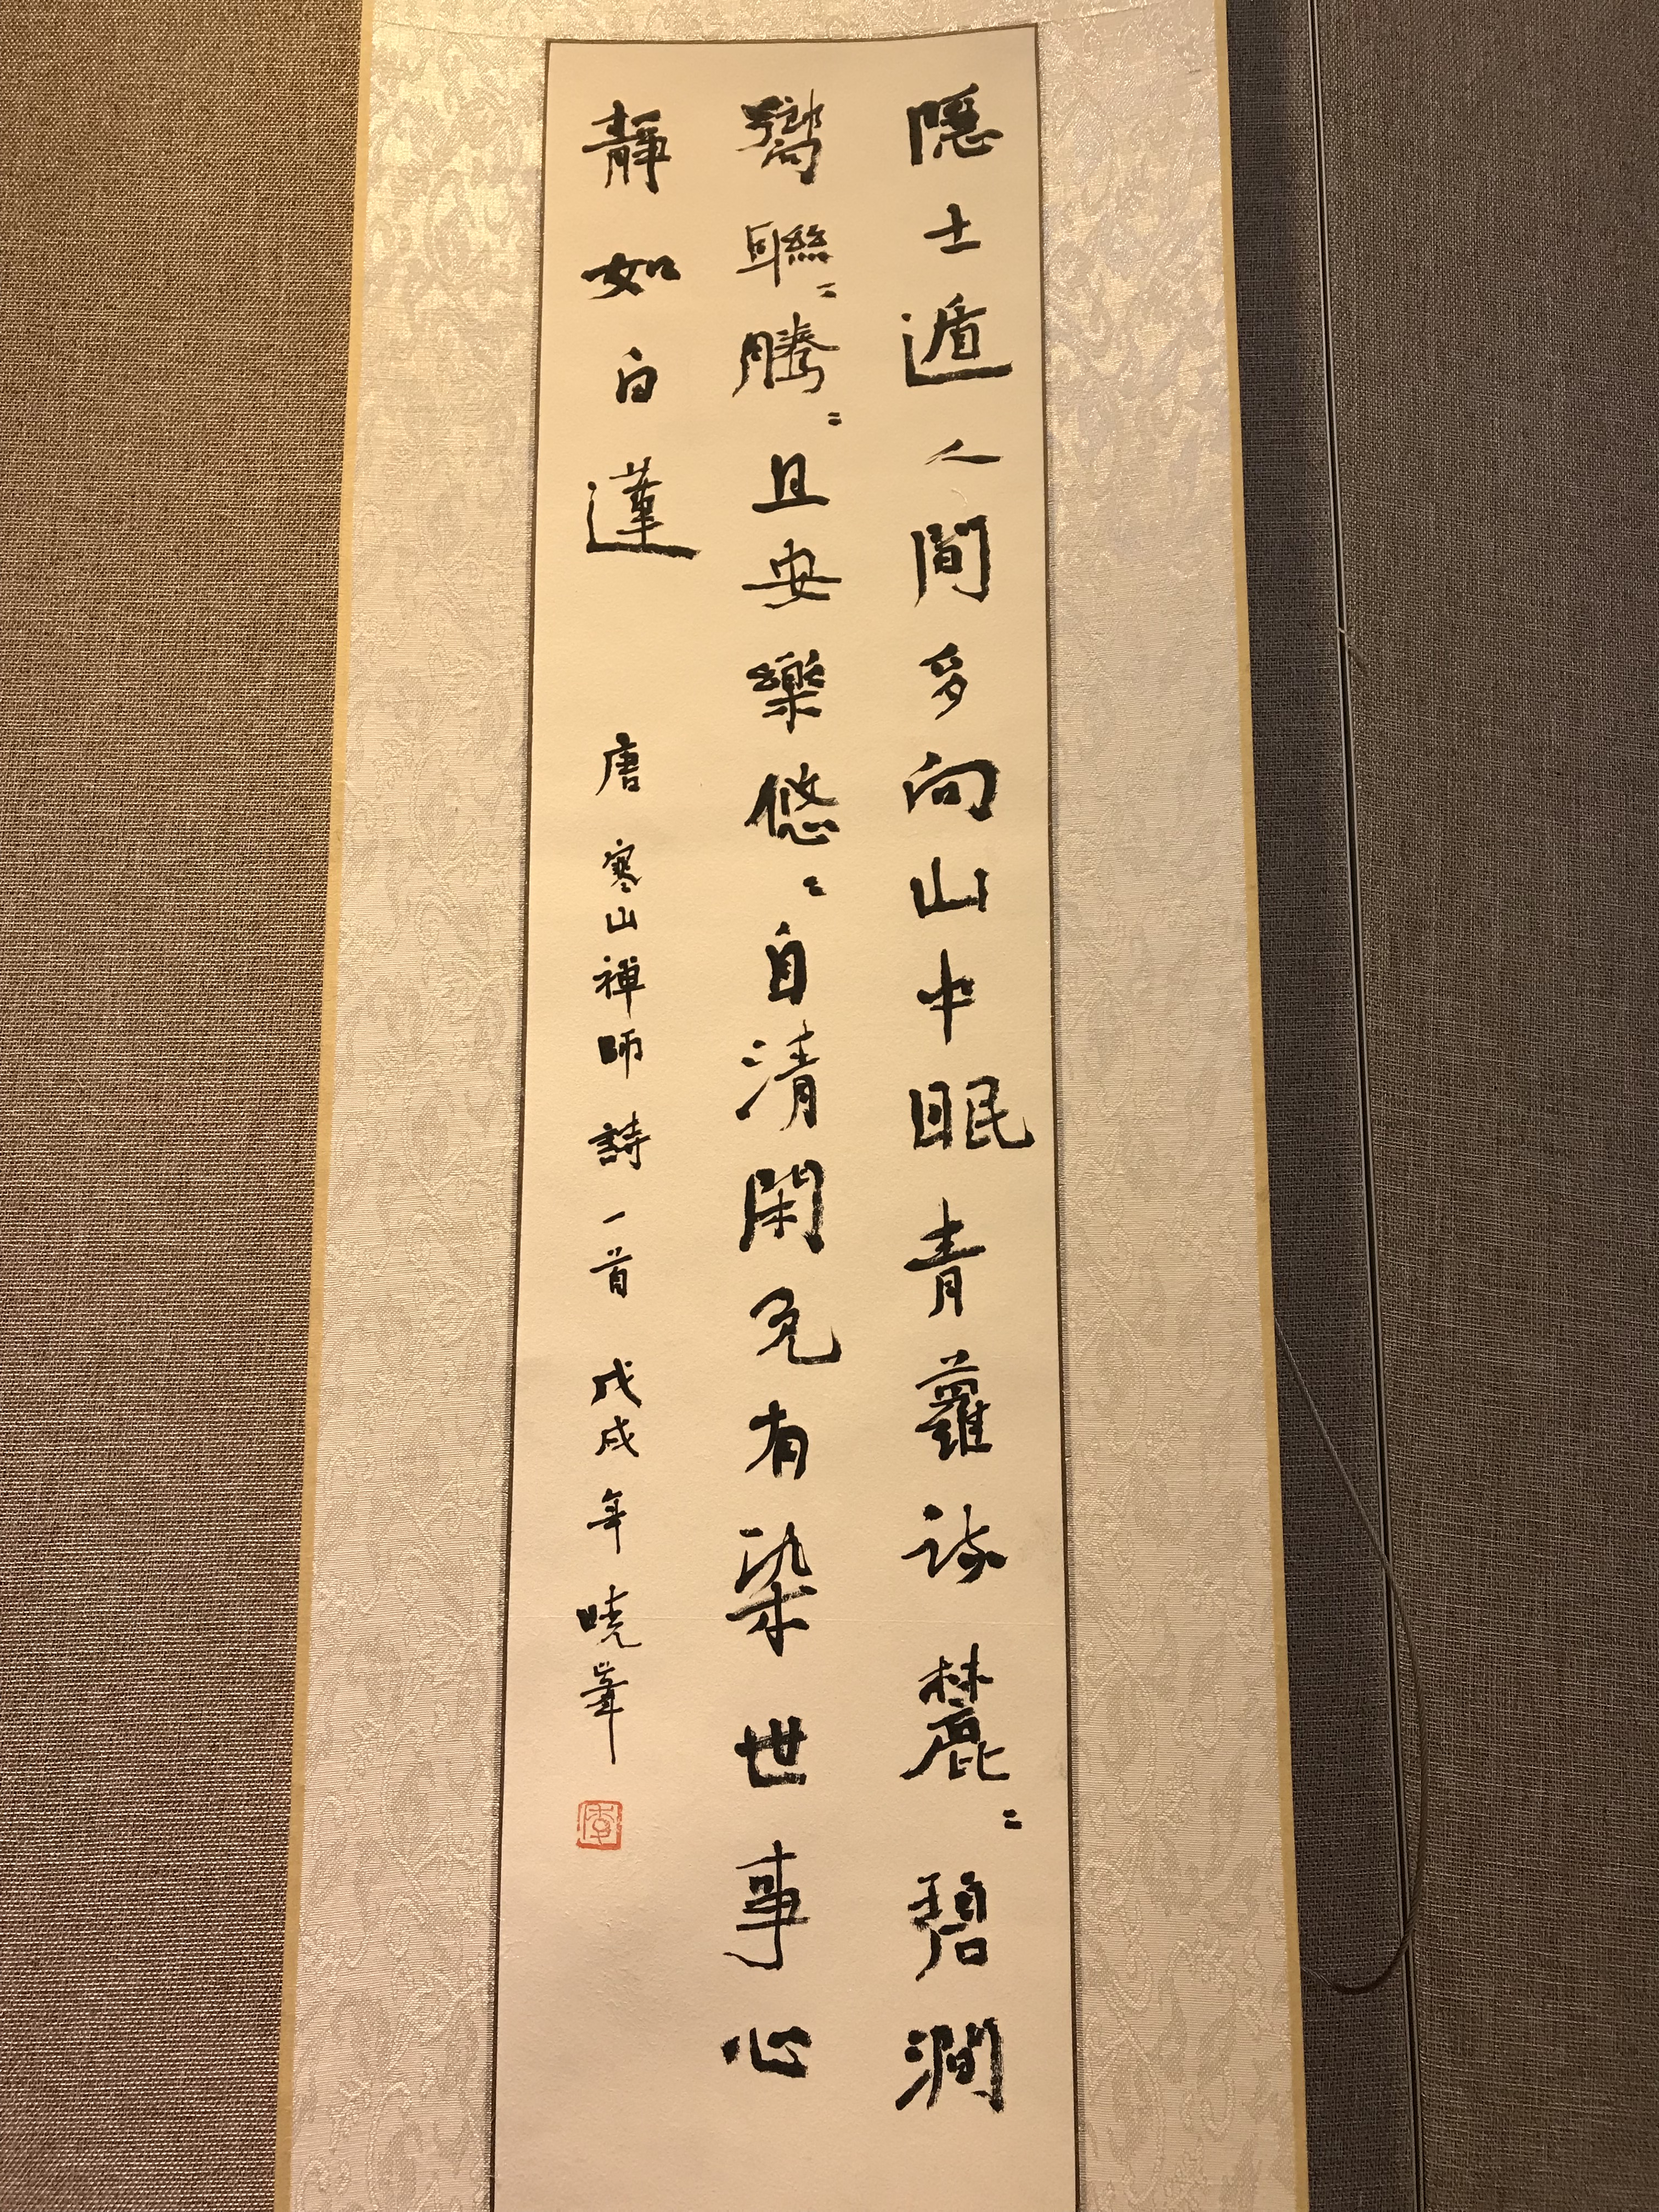 隱士遁人間多向山中眠青蘿疎麓〻碧澗
響聯〻騰〻且安樂悠〻自清閑免有染世事心
靜如白蓮 唐寒山禪師詩一首 戊戌年 曉峯
李